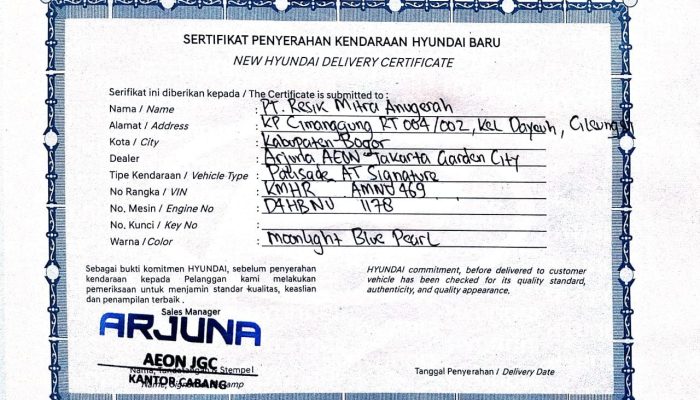 SERTIFIKAT PENYERAHAN KENDARAAN HYUNDAI BARU
NEW HYUNDAI DELIVERY CERTIFICATE
Serifikat ini diberikan kepada / The Certificate is submitted to :
Nama / Name : PT. Resik Mitra Anugerah
Alamat / Address : KP Cimanggung RT 004/002, Kel Dayeuh, Cileungsi
Kota / City : Kabupaten Bogor
Dealer : Arjuna AEON Jakarta Garden City
Tipe Kendaraan / Vehicle Type : Palisade AT Signature
No Rangka / VIN : KMHR AMNU469
No. Mesin / Engine No : D4HBNU 1178
No. Kunci / Key No :
Warna / Color : Moonlight Blue Pearl
Sebagai bukti komitmen HYUNDAI, sebelum penyerahan
kendaraan kepada Pelanggan kami melakukan
pemeriksaan untuk menjamin standar kualitas, keaslian
dan penampilan terbaik .
HYUNDAI commitment, before delivered to customer
vehicle has been checked for its quality standard,
authenticity, and quality appearance.
Sales Manager
ARJUNA
AEON JGC
Nama, Tandatangan & Stempel
KANTOR CABANG
Tanggal Penyerahan / Delivery Date